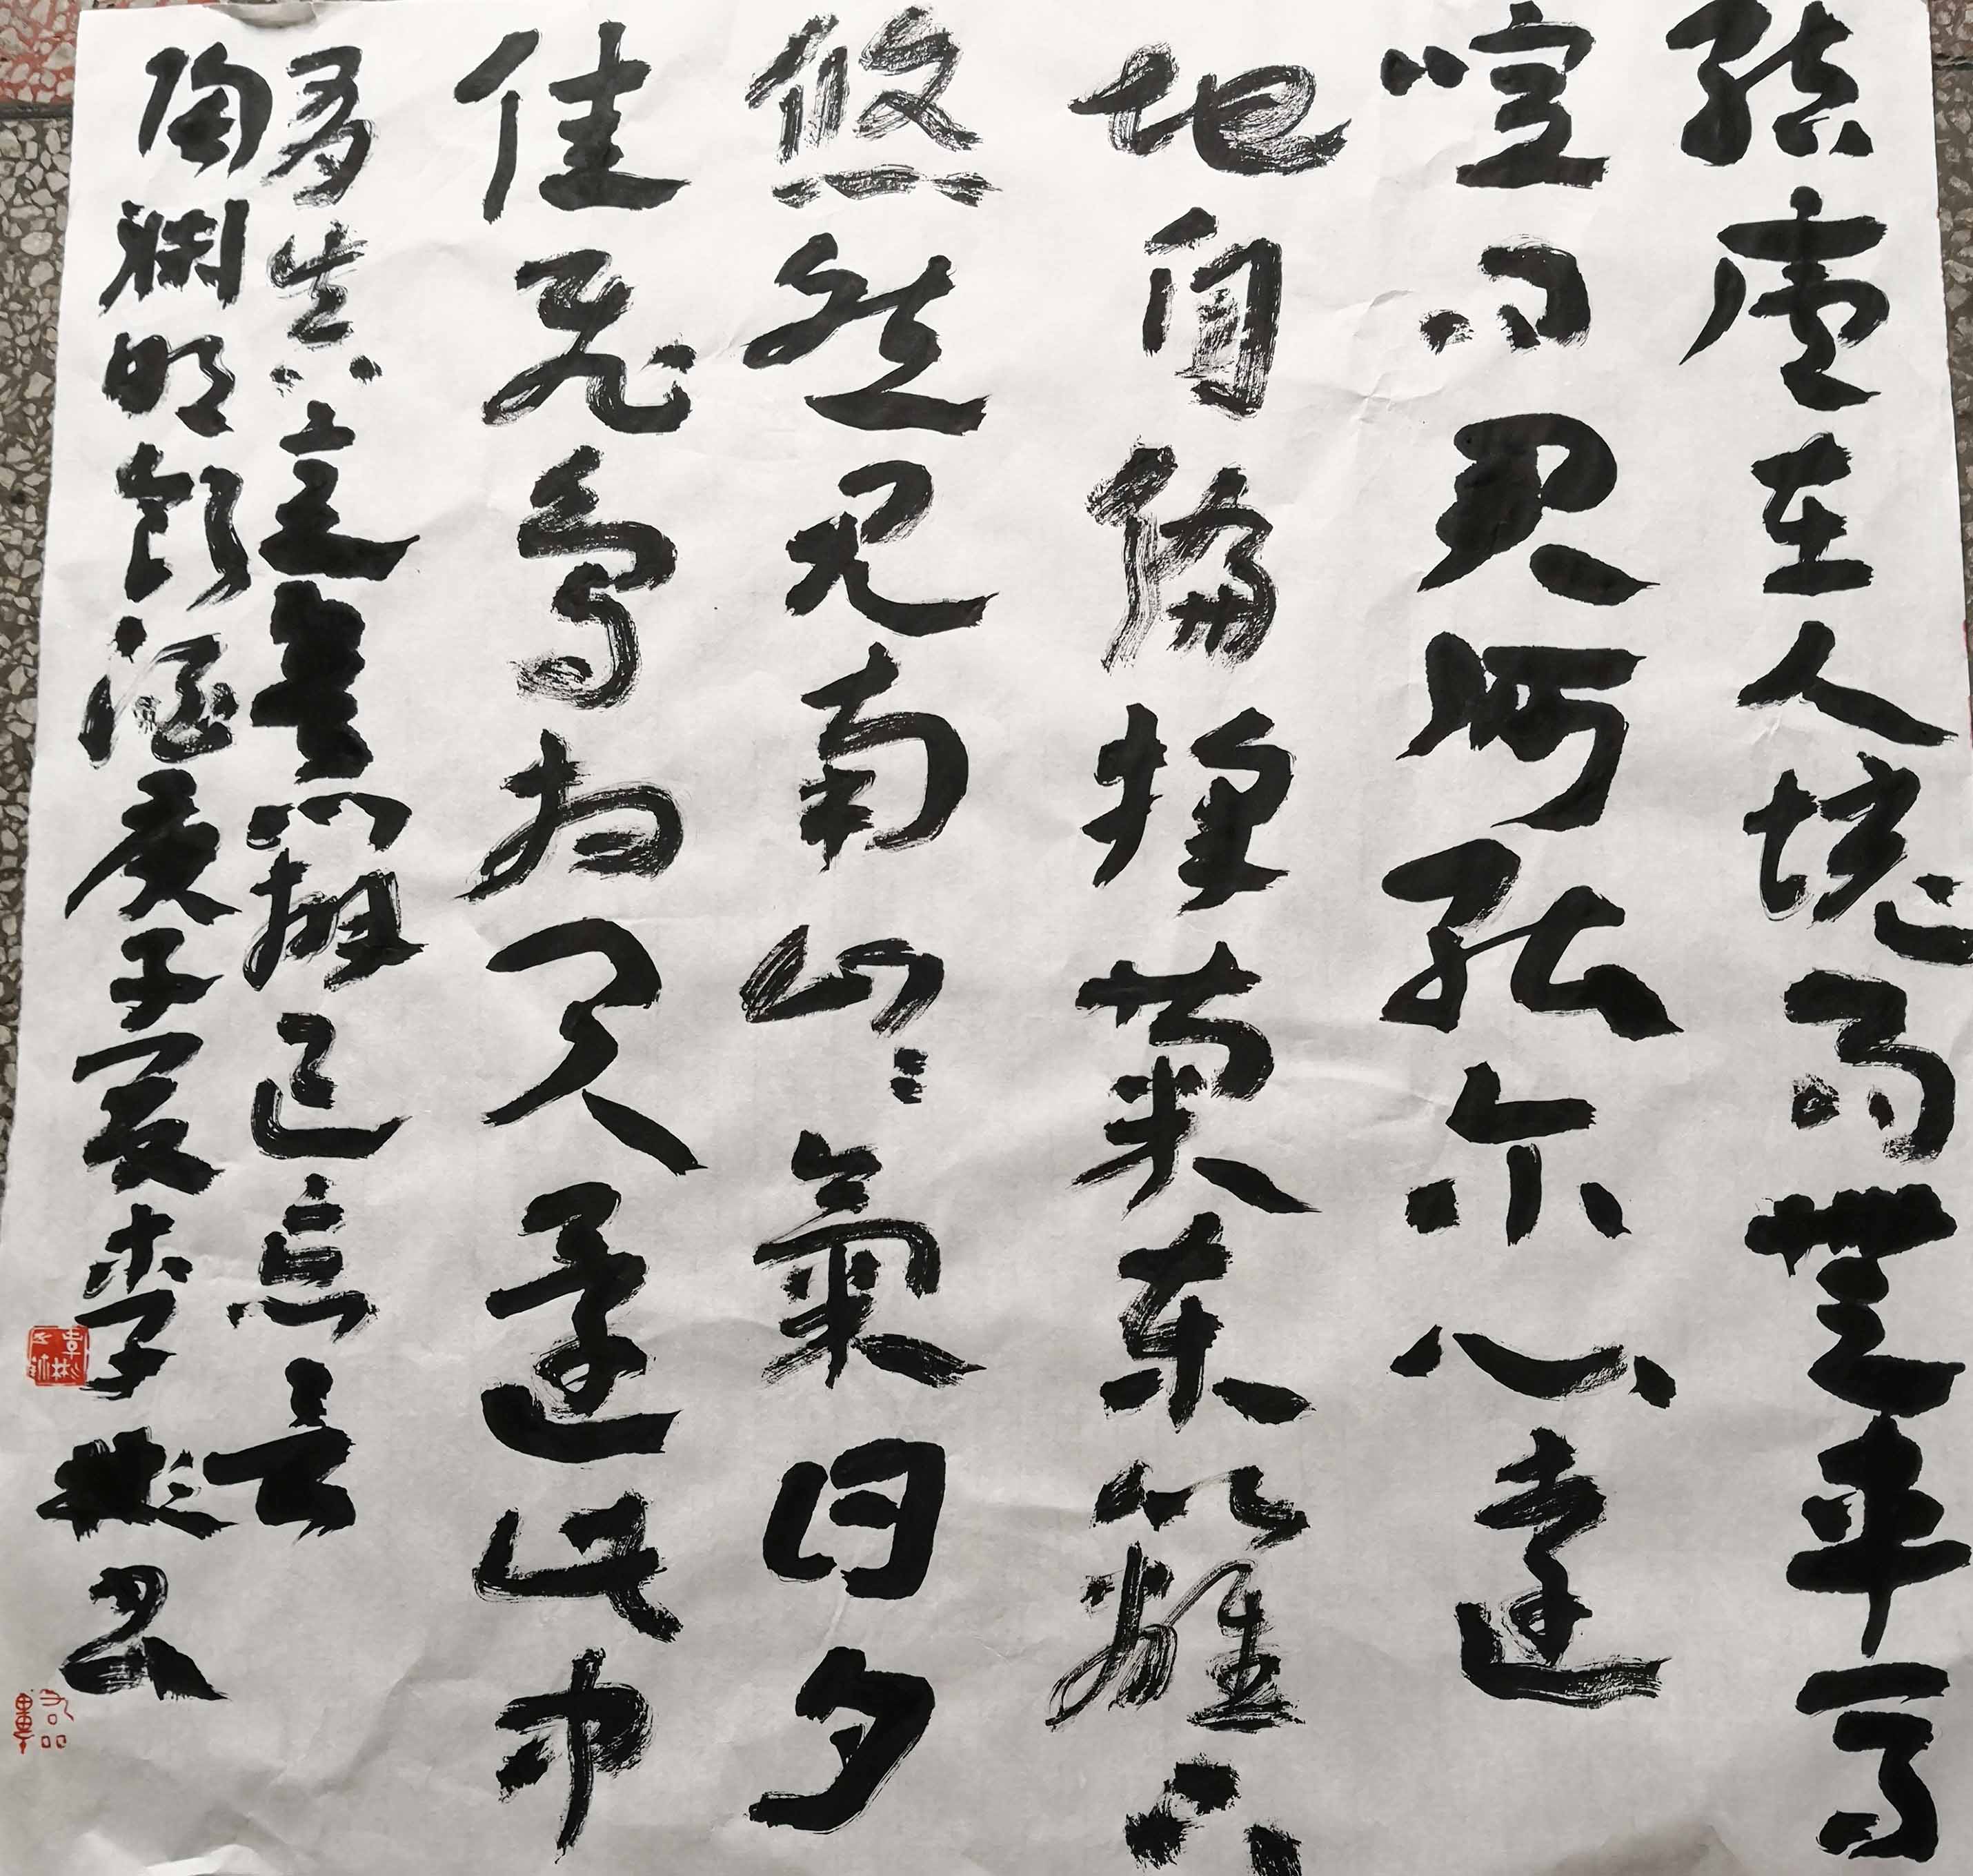 結廬在人境而無車馬
喧问君何能尔心遠
地自偏採菊東籬下
悠然见南山〻氣日夕
佳飛鳥相与還此中
有真意辨已忘言
陶渊明飲酒庚子夏季彬书